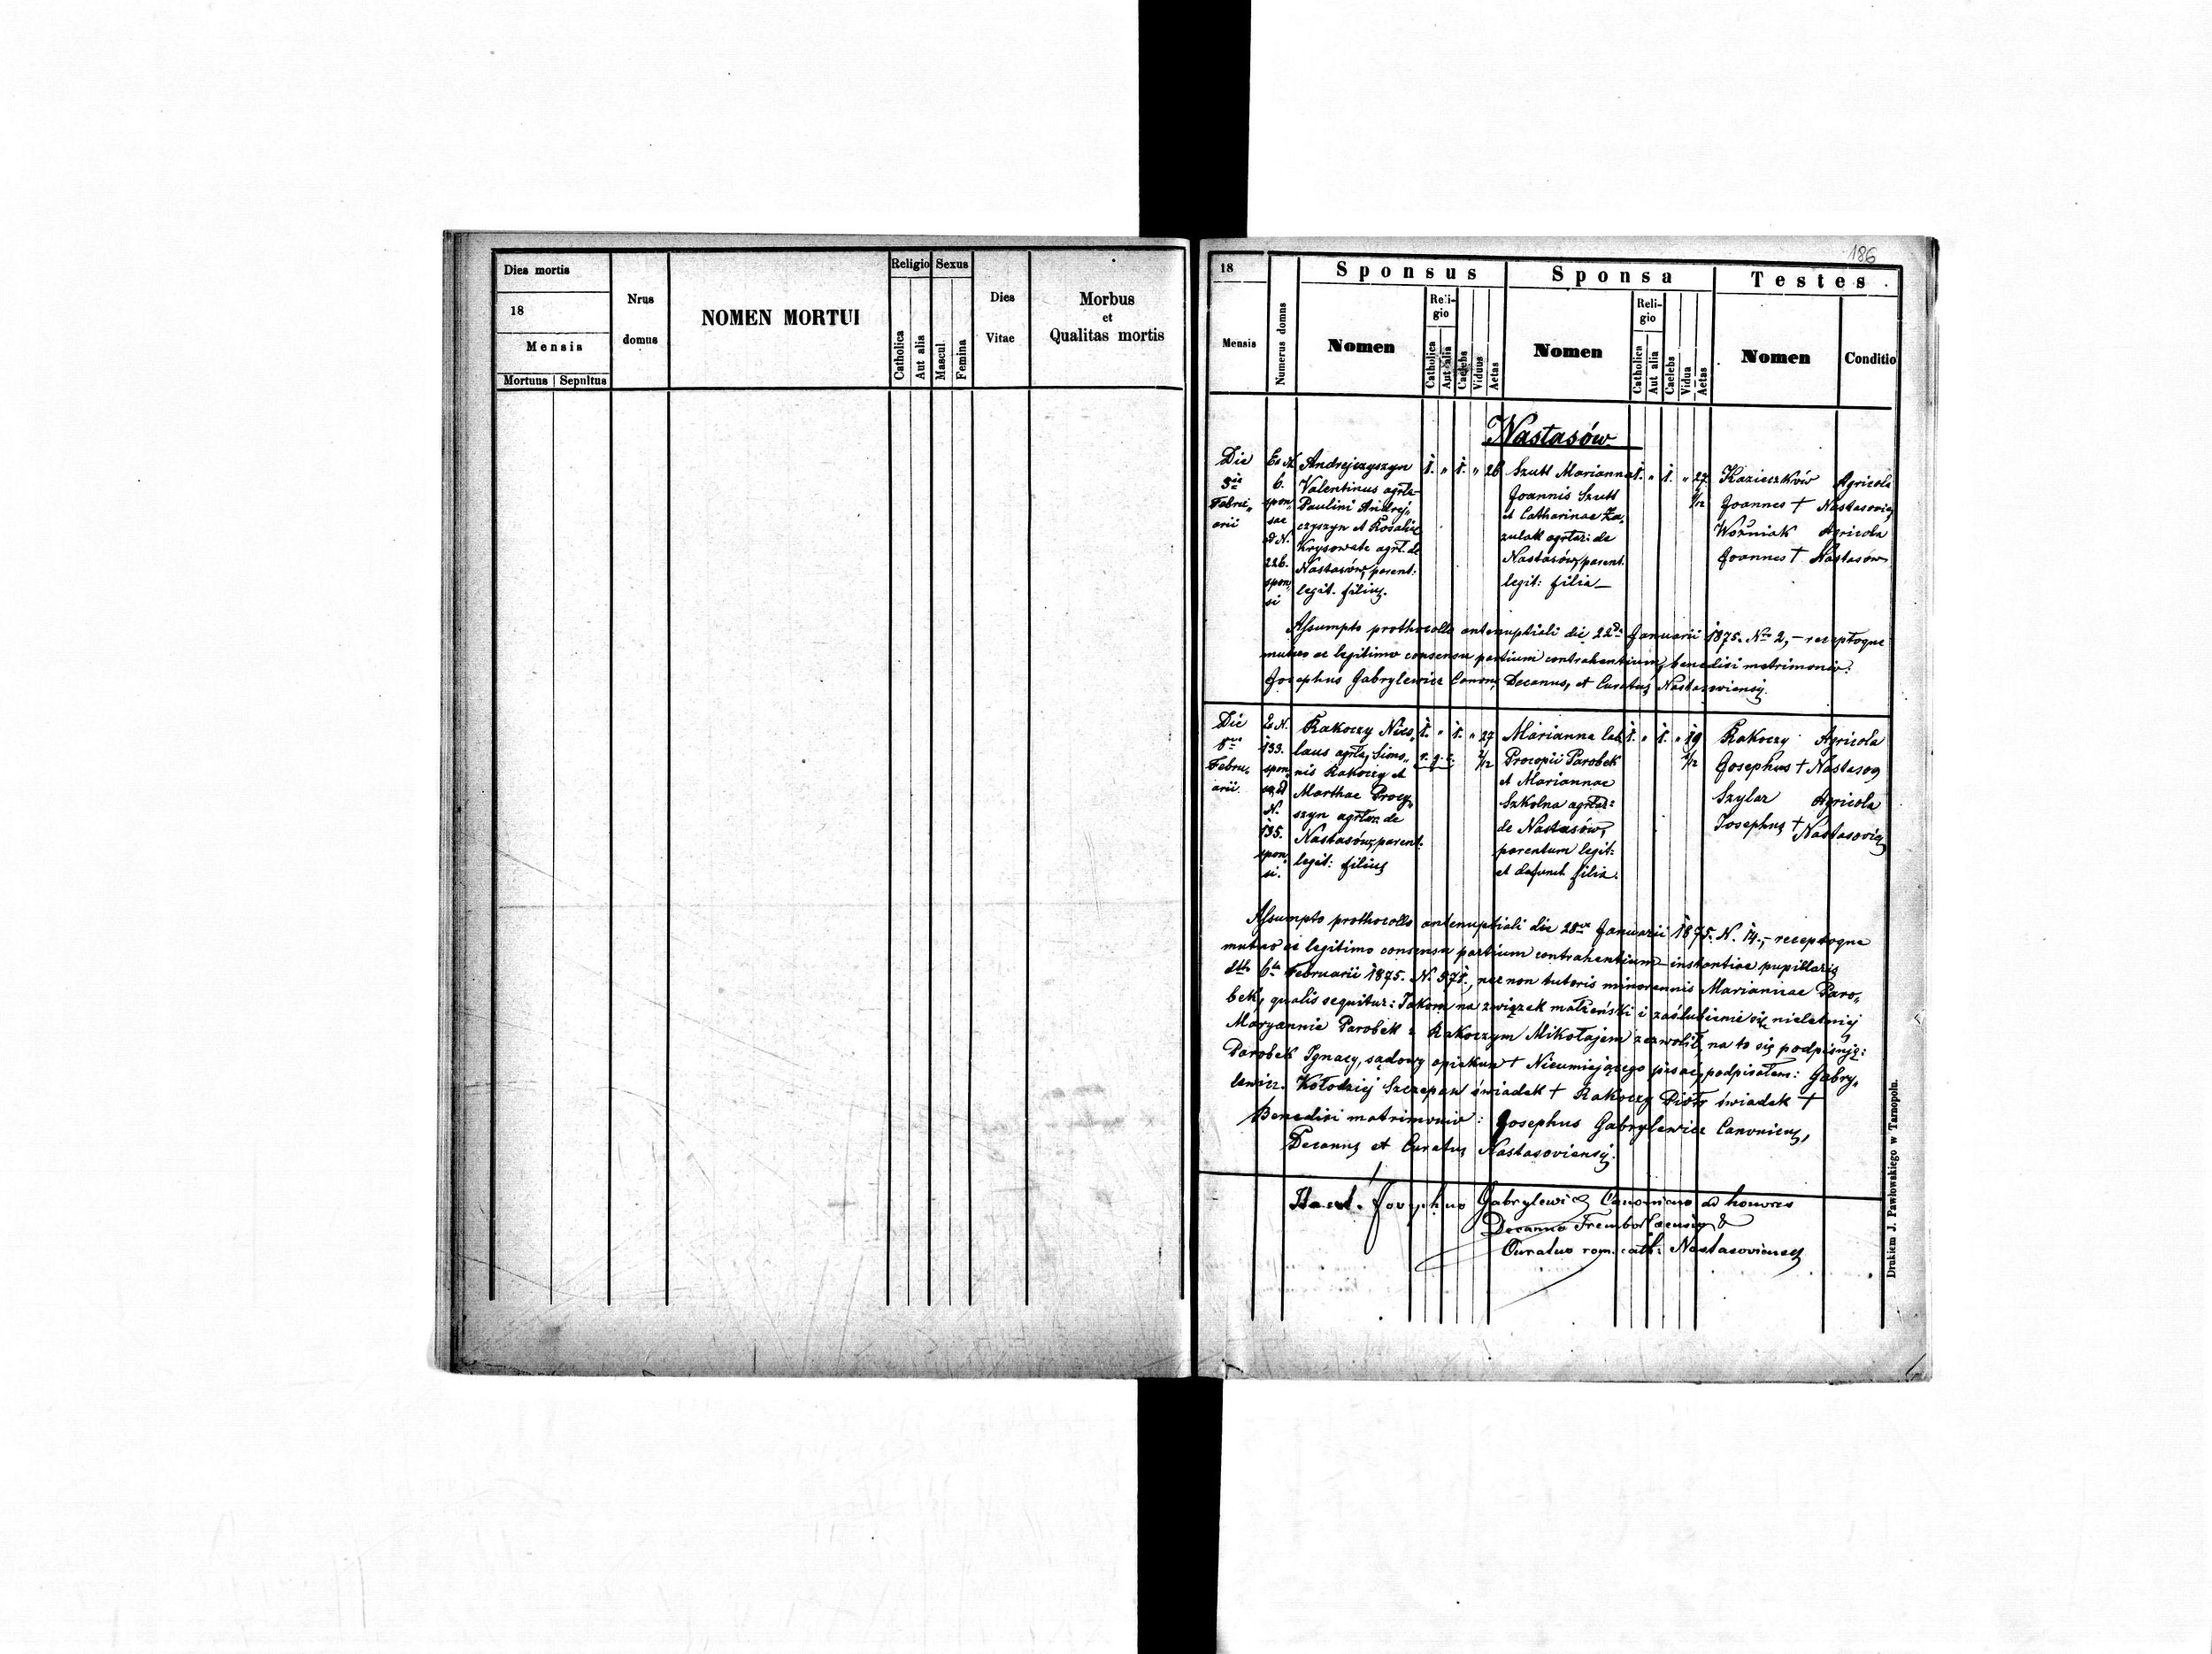 Dies mortis
18
Mensis
Mortuus | Sepultus
Nrus
domus
NOMEN MORTUI
Religio
Catholica
Aut alia
Sexus
Mascul.
Femina
Dies
Vitae
Morbus
et
Qualitas mortis
186
18
Mensis
Numerus domus
Sponsus
Nomen
Reli-
gio
Catholica
Aut alia
Caelebs
Viduus
Aetas
Sponsa
Nomen
Reli-
gio
Catholica
Aut alia
Caelebs
Vidua
Aetas
Testes
Nomen
Conditio
Nastasów
Die
Febru„
arii
Ex N.
6.
spon„
sae
et N.
226.
spon„
si
Andrejczyszyn
Valentinus agrla
Paulini Andrej„
czyszyn et Rosaliae
Krysowate agrl. de
Nastasów, parent:
legit. filius.
1. „ 1. „ 26
Szutt Marianna
Joannis Szutt
et Catharinae Za„
zulak agrlar: de
Nastasów, parent.
legit: filia—
1. „ 1. „ 27
Kazieczków Agricola
Joannes +
Woźniak Agricola
Joannes + Nastasów
Assumpto prothocollo antenuptiali die 22da Januarii 1875. Nro 2, — receptoque
mutuo ac legitimo consensu partium contrahentium, benedixi matrimonio:
Josephus Gabrylewicz Canon, Decanus, et Curatus Nastasoviensis.
Die
8va
Febru„
arii.
Ex N.
133.
spon„
sae, et
N.
135.
spon„
si.
Rakoczy Nico„
laus agrla, Simo„
nis Rakoczy et
Marthae Procy„
szyn agrlar. de
Nastasów, parent.
legit: filius
1. „ 1. „ 27
Marianna
Procopii Parobek
et Mariannae
Szkolna agrlar:
de Nastasów,
parentum legit:
et defunct filia.
1. „ 1. „ 19
Rakoczy Agricola
Josephus +
Szylar Agricola
Josephus +
Assumpto prothocollo antenuptiali die 28va Januarii 1875. N. 14, — receptoque
mutuo ac legitimo consensu partium contrahentium — instantiae pupillaris
ddto 6ta Februarii 1875. N. 571., nec non tutoris minorennis Mariannae Paro„
bek, qualis sequitur: Jakom na związek małżeński i zaślubienie się nieletniej
Maryannie Parobek z Rakoczym Mikołajem zezwolił, na to się podpisuję:
Parobek Ignacy, sądowy opiekun + Nieumiejącego pisać, podpisałem: Gabry„
lewicz. Kołodziej Szczepan świadek + Rakoczy Piotr świadek +
Benedixi matrimonio: Josephus Gabrylewicz Canonicus,
Decanus et Curatus Nastasoviensis.
Josephus Gabrylewicz Canonicus ad honores
Decanus Trembowlaensis &
Curatus rom. cath: Nastasoviensis
Drukiem J. Pawłowskiego w Tarnopolu.